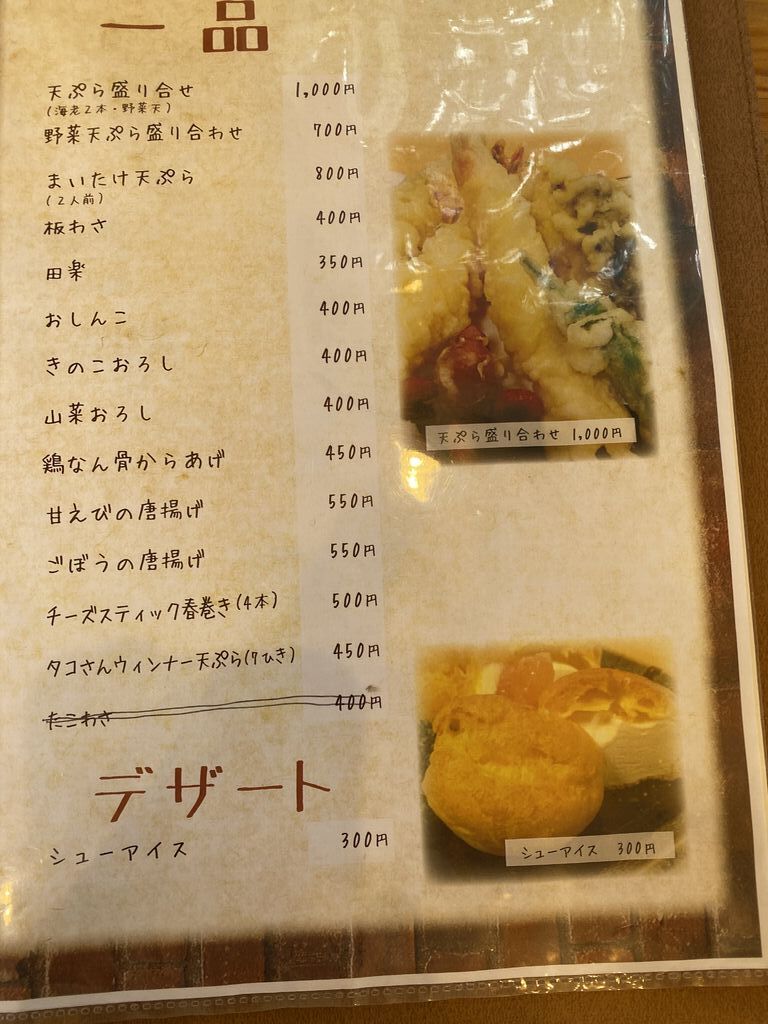 一品
天ぷら盛り合せ 1,000円
(海老2本・野菜天)
野菜天ぷら盛り合わせ 700円
まいたけ天ぷら 800円
(2人前)
板わさ 400円
田楽 350円
おしんこ 400円
きのこおろし 400円
山菜おろし 400円
鶏なん骨からあげ 450円
甘えびの唐揚げ 550円
ごぼうの唐揚げ 550円
チーズスティック春巻き(4本) 500円
タコさんウィンナー天ぷら(7ひき) 450円
たこわさ 400円
天ぷら盛り合わせ 1,000円
デザート
シューアイス 300円
シューアイス 300円